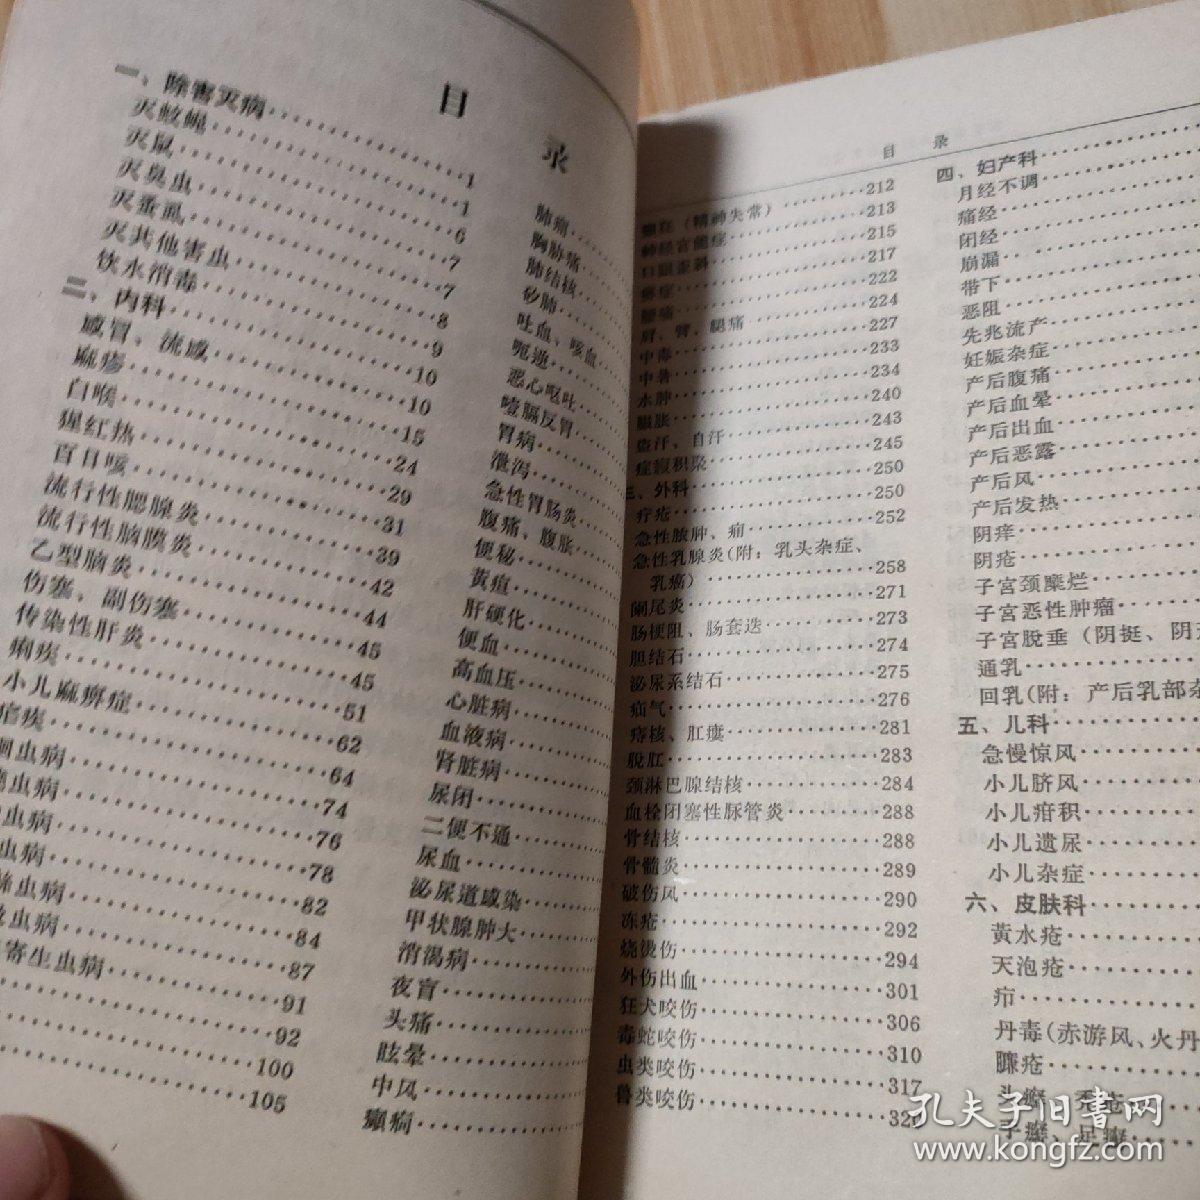 目 录
一、除害灭病 1
灭蚊蝇 1
灭鼠 6
灭臭虫 7
灭蚤虱 7
灭其他害虫 8
饮水消毒 9
二、内科 10
感冒、流感 10
麻疹 15
白喉 24
猩红热 29
百日咳 31
流行性腮腺炎 39
流行性脑膜炎 42
乙型脑炎 44
伤寒、副伤寒 45
传染性肝炎 45
痢疾 51
小儿麻痹症 62
疟疾 64
蛔虫病 74
虫病 76
虫病 78
虫病 82
虫病 84
虫病 87
寄生虫病 91
92
100
105
肺痈
胸胁痛
肺结核
矽肺
吐血、咳血
呃逆
恶心呕吐
噎膈反胃
胃病
泄泻
急性胃肠炎
腹痛、腹胀
便秘
黄疸
肝硬化
便血
高血压
心脏病
血液病
肾脏病
尿闭
二便不通
尿血
泌尿道感染
甲状腺肿大
消渴病
夜盲
头痛
眩晕
中风
癫痫
目 录
癫狂（精神失常） 212
神经官能症 213
口眼歪斜 215
痹症 217
腰痛 222
肩、臂、腿痛 224
中毒 227
中暑 233
水肿 234
臌胀 240
盗汗、自汗 243
症瘕积聚 245
三、外科 250
疔疮 250
急性脓肿、痈 252
急性乳腺炎（附：乳头杂症、
乳癌） 258
阑尾炎 271
肠梗阻、肠套迭 273
胆结石 274
泌尿系结石 275
疝气 276
痔核、肛瘘 281
脱肛 283
颈淋巴腺结核 284
血栓闭塞性脉管炎 288
骨结核 288
骨髓炎 289
破伤风 290
冻疮 292
烧烫伤 294
外伤出血 301
狂犬咬伤 306
毒蛇咬伤 310
虫类咬伤 317
兽类咬伤 320
四、妇产科
月经不调
痛经
闭经
崩漏
带下
恶阻
先兆流产
妊娠杂症
产后腹痛
产后血晕
产后出血
产后恶露
产后风
产后发热
阴痒
阴疮
子宫颈糜烂
子宫恶性肿瘤
子宫脱垂（阴挺、阴
通乳
回乳（附：产后乳部杂
五、儿科
急慢惊风
小儿脐风
小儿疳积
小儿遗尿
小儿杂症
六、皮肤科
黄水疮
天泡疮
疖
丹毒（赤游风、火丹
臁疮
头癣、秃疮
手癣、足癣
孔夫子旧书网
www.kongfz.com